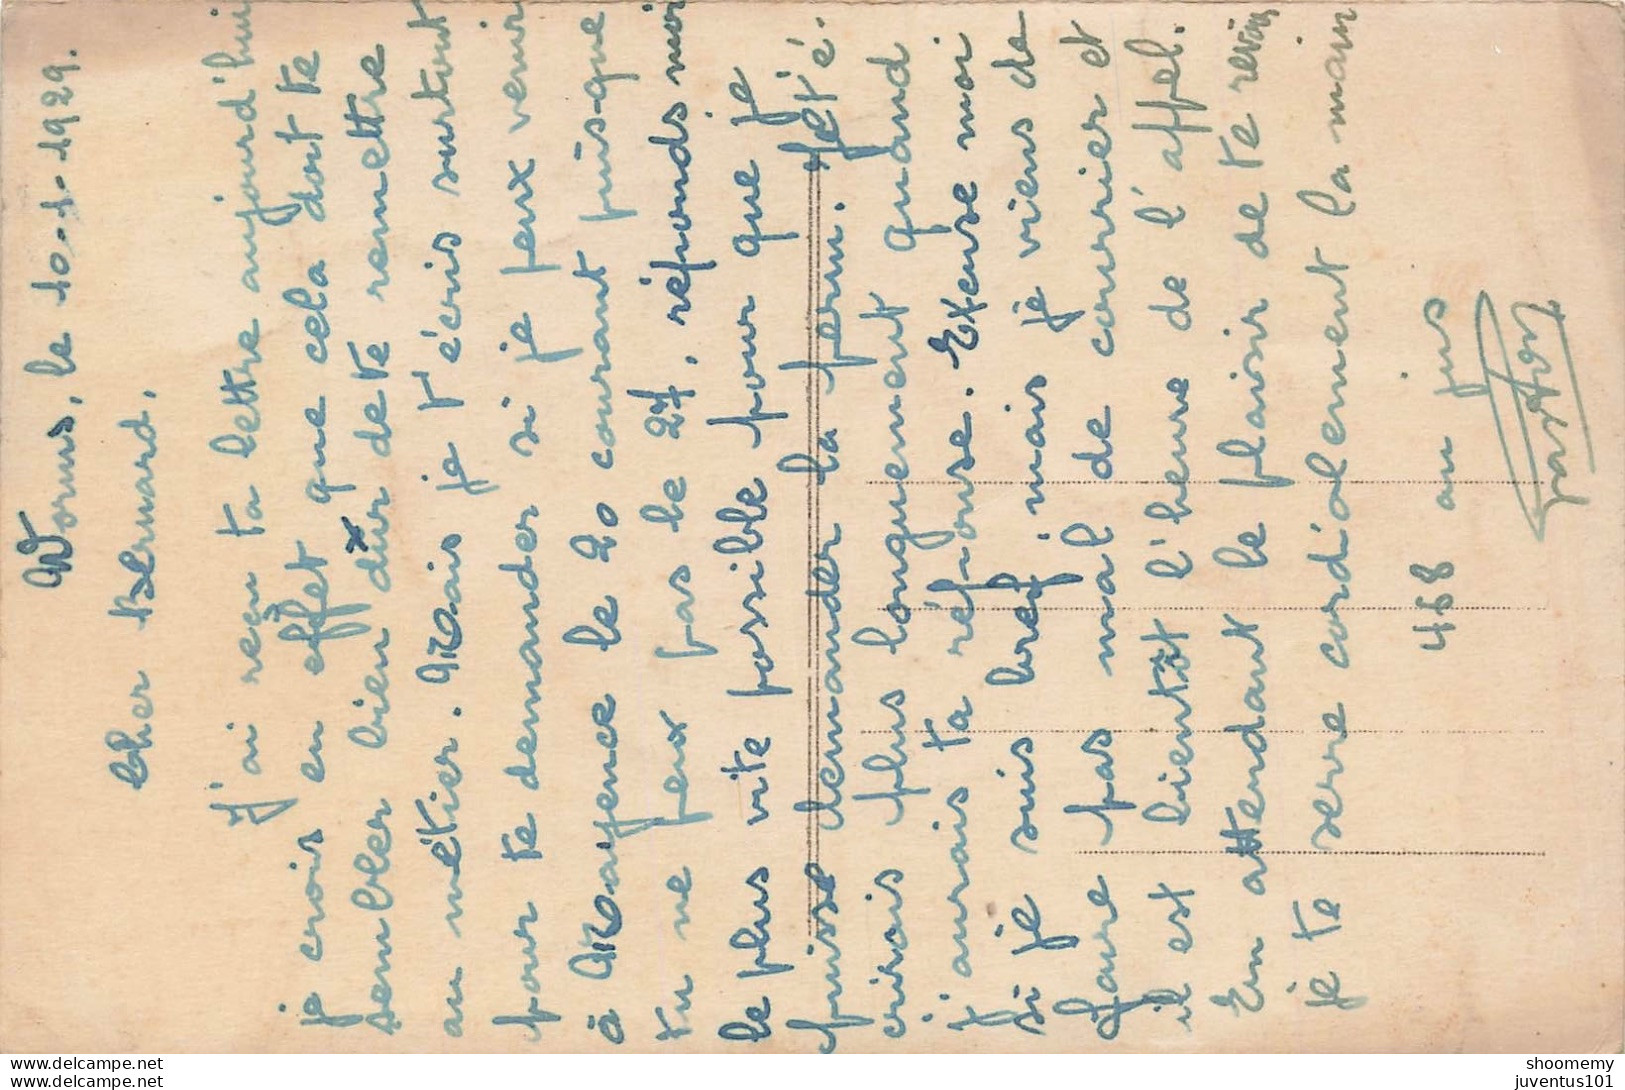 Worms, le 10-1-1929.
Cher Bernard,
J'ai reçu ta lettre aujourd'hui
je crois en effet que cela doit te
sembler bien dur de te remettre
au métier. Mais je t'écris surtout
pour te demander si je peux venir
à Mayence le 20 courant puis-que
tu ne peux pas le 27, réponds moi
le plus vite possible pour que je
puisse demander la perm. Je t'é-
crirais plus longuement quand
j'aurais ta réponse. Excuse moi
si je suis bref, mais je viens de
faire pas mal de courrier et
il est bientôt l'heure de l'appel.
En attendant le plaisir de te revoir
je te serre cordialement la main
468 au jus
Gaston
shoomemy
juventus101